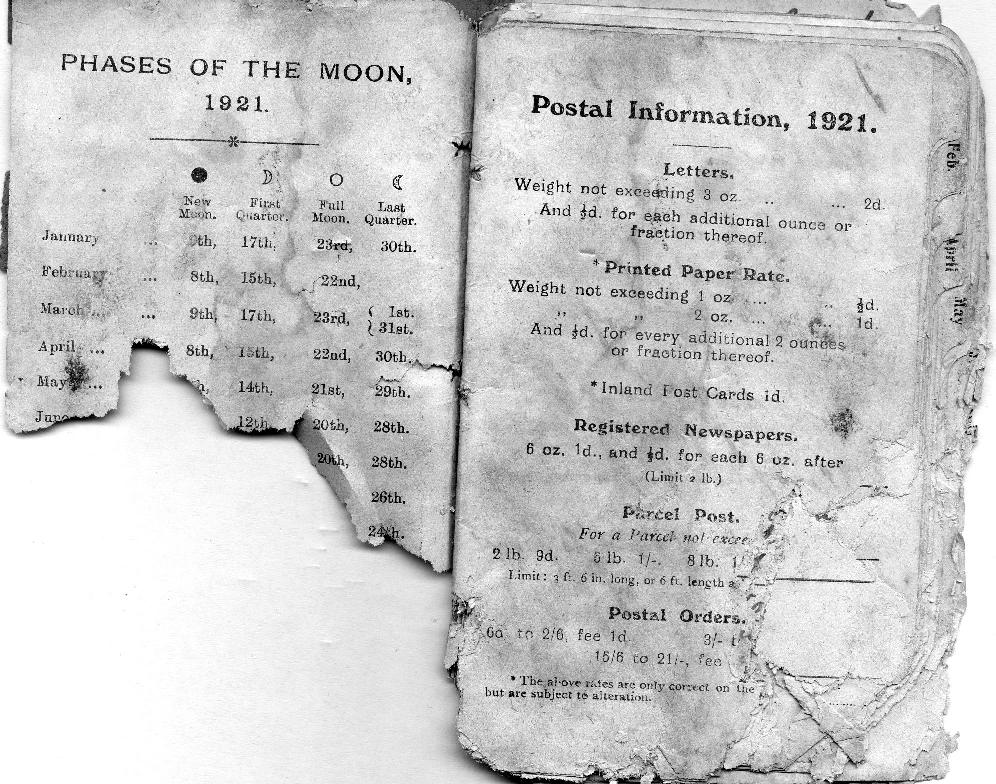 PHASES OF THE MOON,
1921.
New Moon. First Quarter. Full Moon. Last Quarter.
January ... 9th, 17th, 23rd, 30th.
February ... 8th, 15th, 22nd,
March ... ... 9th, 17th, 23rd, { 1st. 31st.
April ... 8th, 15th, 22nd, 30th.
May ... 14th, 21st, 29th.
June 12th, 20th, 28th.
20th, 28th.
26th.
24th.
Postal Information, 1921.
Letters.
Weight not exceeding 3 oz. .. ... 2d.
And ½d. for each additional ounce or
fraction thereof.
*Printed Paper Rate.
Weight not exceeding 1 oz. ... .. ½d.
„ „ 2 oz. ... .. 1d.
And ½d. for every additional 2 ounces
or fraction thereof.
*Inland Post Cards 1d.
Registered Newspapers.
6 oz. 1d., and ½d. for each 6 oz. after
(Limit 2 lb.)
Parcel Post.
For a Parcel not excee
2 lb. 9d. 5 lb. 1/-. 8 lb. 1/
Limit: 3 ft. 6 in. long, or 6 ft. length a
Postal Orders.
6d. to 2/6, fee 1d. 3/- t
15/6 to 21/-, fee
* The above rates are only correct on the
but are subject to alteration.
Feb.
April
May